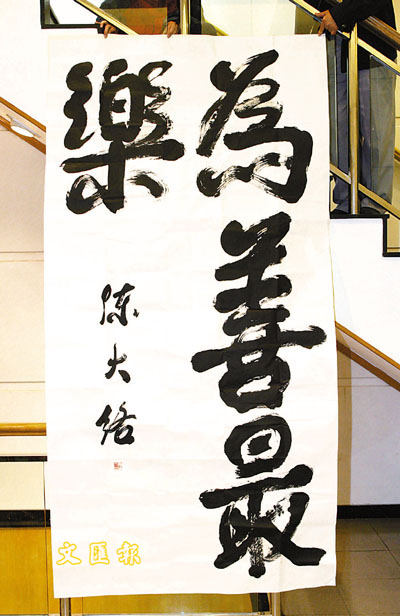 為善最
樂
陈大络
文匯報